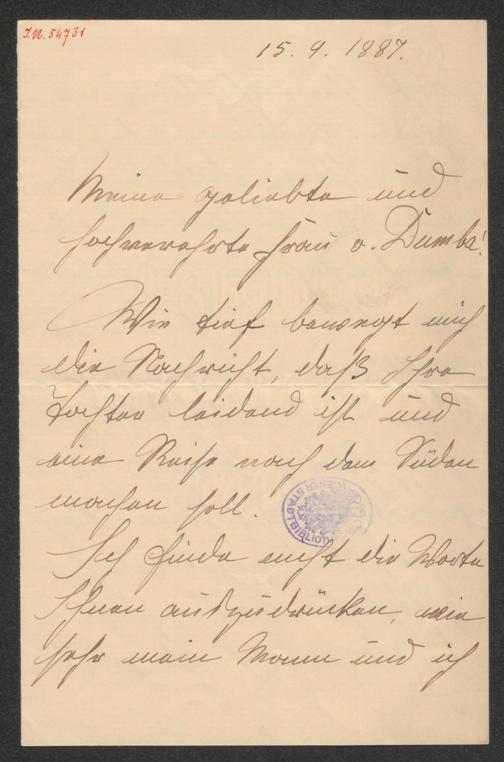 I.N. 54731
15. 9. 1887.
Meine geliebte und
hochverehrte Frau v. Dumba!
Wie tief bewegt mich
die Nachricht, daß Ihre
Tochter leidend ist und
eine Reise nach dem Süden
machen soll.
WIENER STADTBIBLIOTHEK
Ich finde nicht die Worte
Ihnen auszudrücken, wie
sehr mein Mann und ich